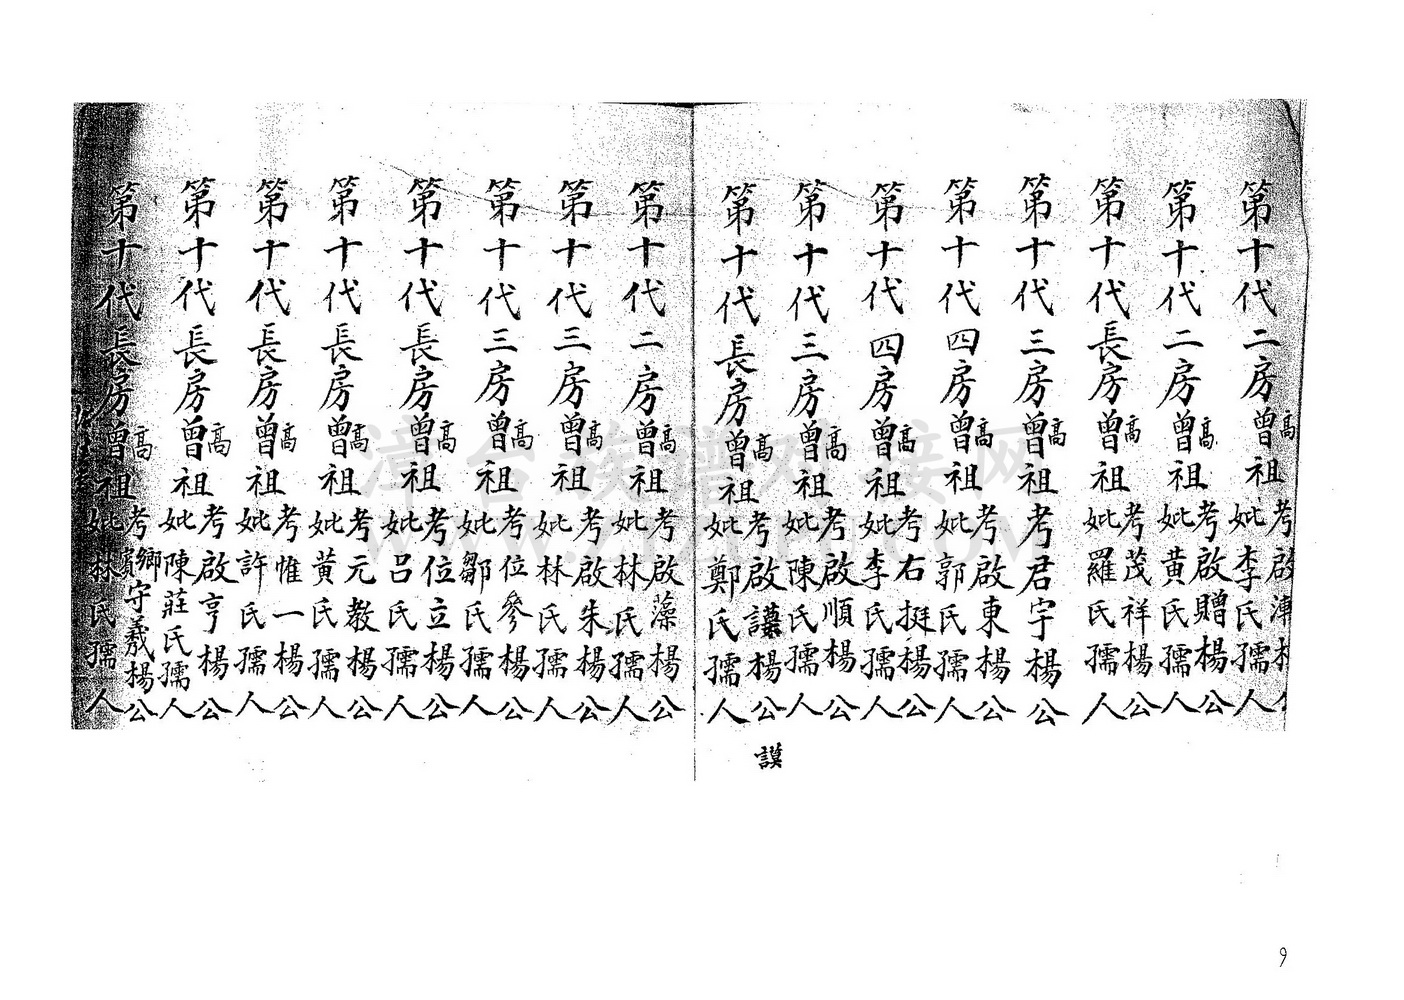 第十代二房曾高祖考啟漳楊公妣李氏孺人
第十代二房曾高祖考啟贈楊公妣黄氏孺人
第十代長房曾高祖考茂祥楊公妣羅氏孺人
第十代三房曾高祖考君宇楊公
第十代四房曾高祖考啟東楊公妣郭氏孺人
第十代四房曾高祖考右挺楊公妣李氏孺人
第十代三房曾高祖考啟順楊公妣陳氏孺人
第十代長房曾高祖考啟謨楊公妣鄭氏孺人
謨
第十代二房曾高祖考啟藻楊公妣林氏孺人
第十代三房曾高祖考啟朱楊公妣林氏孺人
第十代三房曾高祖考位參楊公妣鄒氏孺人
第十代長房曾高祖考位立楊公妣呂氏孺人
第十代長房曾高祖考元教楊公妣黄氏孺人
第十代長房曾高祖考惟一楊公妣許氏孺人
第十代長房曾高祖考啟亨楊公妣陳莊氏孺人
第十代長房曾高祖考鄉賓守羲楊公妣林氏孺人
漳台族谱对接网
9